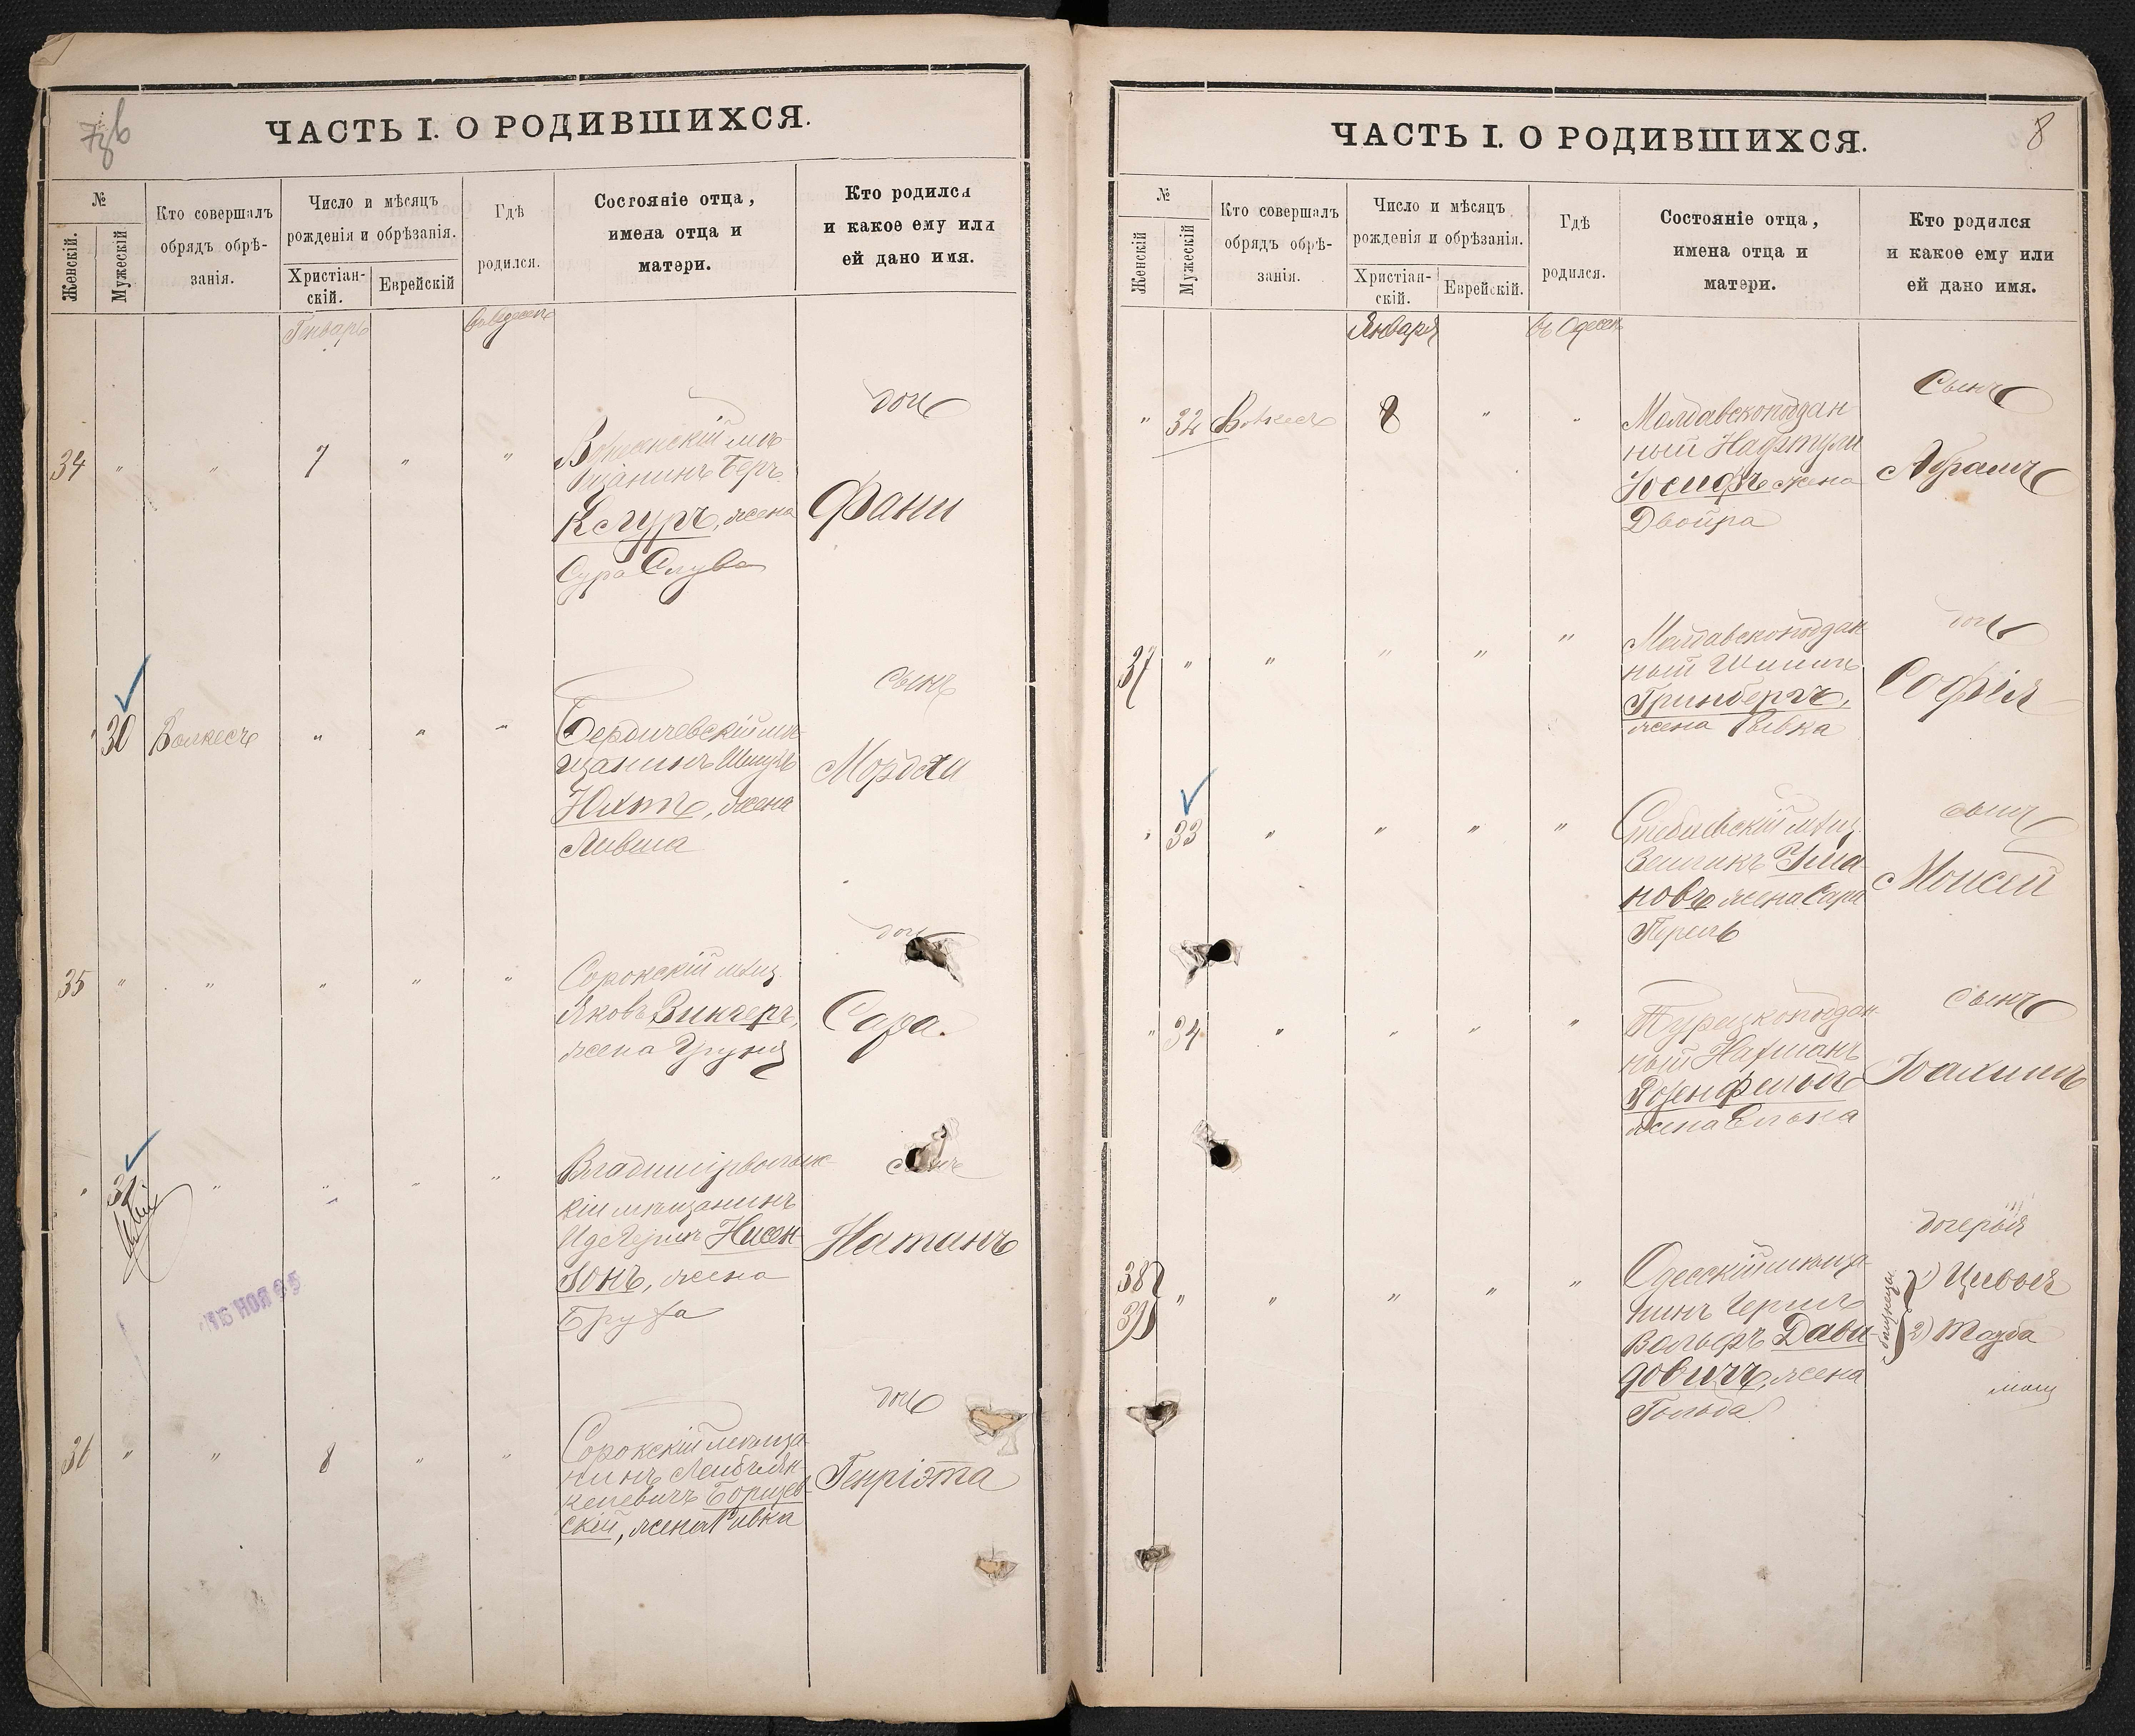 ЧАСТЬ I. О РОДИВШИХСЯ.
№
Женскій.
Мужескій
Кто совершалъ
обрядъ обрѣ-
занія.
Число и мѣсяцъ
рожденія и обрѣзанія.
Христіан-
скій.
Еврейскій
Гдѣ
родился.
Состояніе отца,
имена отца и
матери.
Кто родился
и какое ему или
ей дано имя.
Январь
34 " " 7 " "
щанинъ Беръ
жена
Сура Слува
доч
Фани
30 Волкесъ " " "
Бердичевскій мѣ-
щанинъ Шмуль
Юхтъ, жена
Ливша
сынъ
Мордха
35 " " " " "
Сорокскій мѣщ.
Яковъ Викнеръ,
жена
доч
Сара.
" 31 " " " "
кій мѣщанинъ
Нисен-
зонъ, жена
сынъ
Натанъ
15 НОЯ 95
36 " " 8 " "
Сорокскій мѣща-
нинъ Лейбъ Ян-
келевичъ Борщев-
скій, жена Ривка
доч
Генріэта
ЧАСТЬ I. О РОДИВШИХСЯ.
8
№
Женскій
Мужескій
Кто совершалъ
обрядъ обрѣ-
занія.
Число и мѣсяцъ
рожденія и обрѣзанія.
Христіан-
скій.
Еврейскій.
Гдѣ
родился.
Состояніе отца,
имена отца и
матери.
Кто родился
и какое ему или
ей дано имя.
Января
въ Одессѣ
" 32 Волкесъ 8 " "
Молдавскоподдан
ный Нафтули
Іосифъ жена
Двойра
Сынъ
Абрамъ
37 " " " " "
Молдавскоподдан
ный
Гринбергъ,
жена Ривка
доч
Софія
" 33 " " " "
мѣщ.
Зельманъ
новъ жена Сара
Перель
сынъ
Моисей
" 34 " " " "
Турецкоподдан-
ный Нахманъ
Розенфельдъ
жена Елена
сынъ
Іоахимъ
38
39 " " " " "
Одесскій мѣща-
нинъ Гершъ
Вольфъ Дави-
довичъ, жена
Гольда
дочерья
близнецы.
1) Цивья
2) Тауба